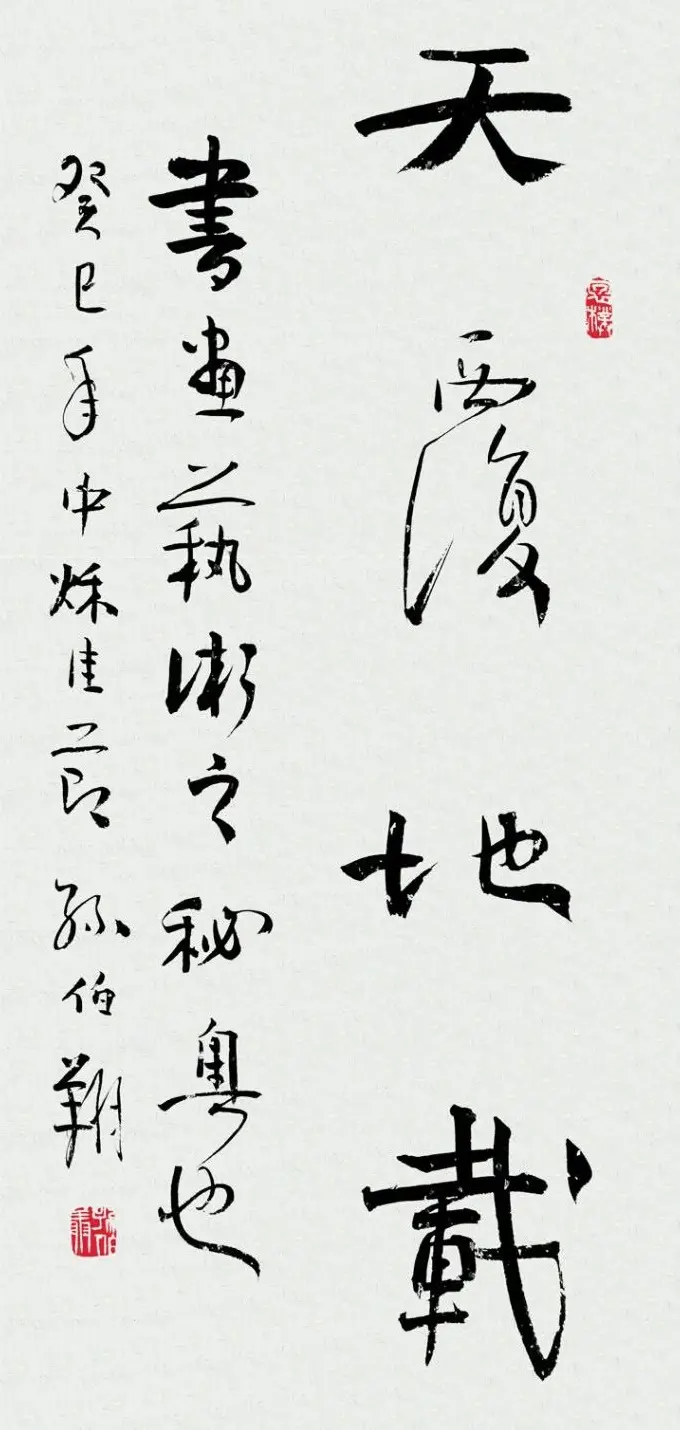 天覆地載
書畫藝術之秘奧也
癸巳年中秌佳節 孫伯翔